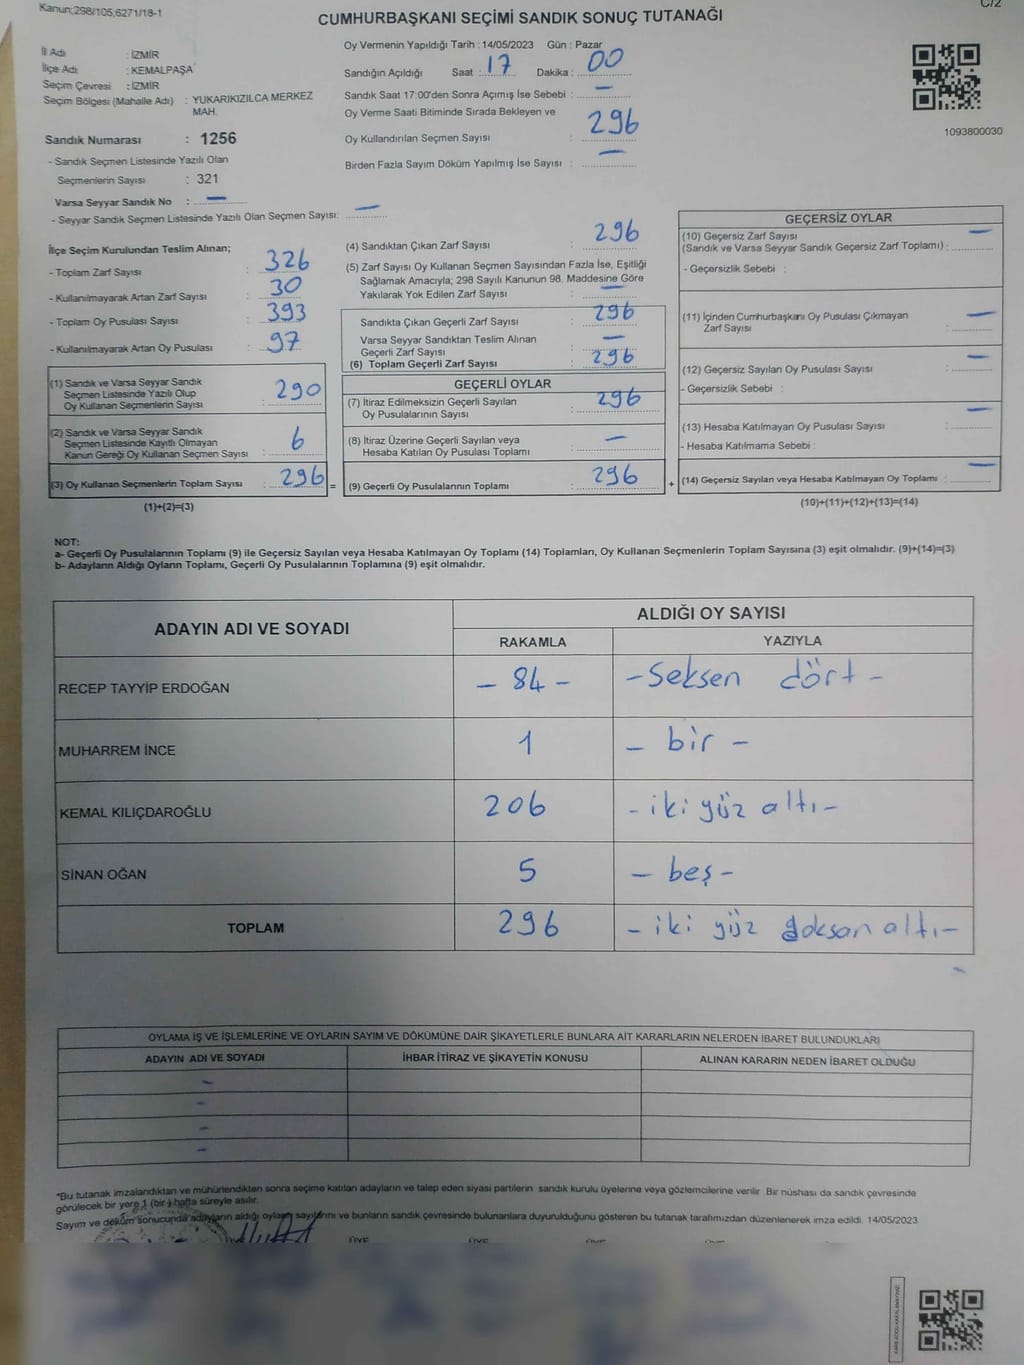 Kanun;298/105,6271/18-1
C/2
CUMHURBAŞKANI SEÇİMİ SANDIK SONUÇ TUTANAĞI
İl Adı : İZMİR
İlçe Adı : KEMALPAŞA
Seçim Çevresi : İZMİR
Seçim Bölgesi (Mahalle Adı) : YUKARIKIZILCA MERKEZ
MAH.
Sandık Numarası : 1256
- Sandık Seçmen Listesinde Yazılı Olan
Seçmenlerin Sayısı : 321
Varsa Seyyar Sandık No : —
- Seyyar Sandık Seçmen Listesinde Yazılı Olan Seçmen Sayısı: —
Oy Vermenin Yapıldığı Tarih : 14/05/2023 Gün : Pazar
Sandığın Açıldığı Saat : 17 Dakika : 00
Sandık Saat 17:00'den Sonra Açımış İse Sebebi : —
Oy Verme Saati Bitiminde Sırada Bekleyen ve
Oy Kullandırılan Seçmen Sayısı : 296
Birden Fazla Sayım Döküm Yapılmış İse Sayısı : —
1093800030
İlçe Seçim Kurulundan Teslim Alınan;
- Toplam Zarf Sayısı : 326
- Kullanılmayarak Artan Zarf Sayısı : 30
- Toplam Oy Pusulası Sayısı : 393
- Kullanılmayarak Artan Oy Pusulası : 97
(1) Sandık ve Varsa Seyyar Sandık
Seçmen Listesinde Yazılı Olup
Oy Kullanan Seçmenlerin Sayısı : 290
(2) Sandık ve Varsa Seyyar Sandık
Seçmen Listesinde Kayıtlı Olmayan
Kanun Gereği Oy Kullanan Seçmen Sayısı : 6
(3) Oy Kullanan Seçmenlerin Toplam Sayısı : 296 =
(1)+(2)=(3)
(4) Sandıktan Çıkan Zarf Sayısı : 296
(5) Zarf Sayısı Oy Kullanan Seçmen Sayısından Fazla İse, Eşitliği
Sağlamak Amacıyla; 298 Sayılı Kanunun 98. Maddesine Göre
Yakılarak Yok Edilen Zarf Sayısı : —
Sandıkta Çıkan Geçerli Zarf Sayısı : 296
Varsa Seyyar Sandıktan Teslim Alınan
Geçerli Zarf Sayısı : —
(6) Toplam Geçerli Zarf Sayısı : 296
GEÇERLİ OYLAR
(7) İtiraz Edilmeksizin Geçerli Sayılan
Oy Pusulalarının Sayısı : 296
(8) İtiraz Üzerine Geçerli Sayılan veya
Hesaba Katılan Oy Pusulası Toplamı : —
(9) Geçerli Oy Pusulalarının Toplamı : 296 +
GEÇERSİZ OYLAR
(10) Geçersiz Zarf Sayısı
(Sandık ve Varsa Seyyar Sandık Geçersiz Zarf Toplamı) : —
- Geçersizlik Sebebi :
(11) İçinden Cumhurbaşkanı Oy Pusulası Çıkmayan
Zarf Sayısı : —
(12) Geçersiz Sayılan Oy Pusulası Sayısı : —
- Geçersizlik Sebebi :
(13) Hesaba Katılmayan Oy Pusulası Sayısı : —
- Hesaba Katılmama Sebebi :
(14) Geçersiz Sayılan veya Hesaba Katılmayan Oy Toplamı : —
(10)+(11)+(12)+(13)=(14)
NOT:
a- Geçerli Oy Pusulalarının Toplamı (9) ile Geçersiz Sayılan veya Hesaba Katılmayan Oy Toplamı (14) Toplamları, Oy Kullanan Seçmenlerin Toplam Sayısına (3) eşit olmalıdır. (9)+(14)=(3)
b- Adayların Aldığı Oyların Toplamı, Geçerli Oy Pusulalarının Toplamına (9) eşit olmalıdır.
ADAYIN ADI VE SOYADI
ALDIĞI OY SAYISI
RAKAMLA YAZIYLA
RECEP TAYYİP ERDOĞAN - 84 - - Seksen dört -
MUHARREM İNCE 1 - bir -
KEMAL KILIÇDAROĞLU 206 - iki yüz altı -
SİNAN OĞAN 5 - beş -
TOPLAM 296 - iki yüz doksan altı -
OYLAMA İŞ VE İŞLEMLERİNE VE OYLARIN SAYIM VE DÖKÜMÜNE DAİR ŞİKAYETLERLE BUNLARA AİT KARARLARIN NELERDEN İBARET BULUNDUKLARI
ADAYIN ADI VE SOYADI İHBAR İTİRAZ VE ŞİKAYETİN KONUSU ALINAN KARARIN NEDEN İBARET OLDUĞU
—
—
—
—
*Bu tutanak imzalandıktan ve mühürlendikten sonra seçime katılan adayların ve talep eden siyasi partilerin sandık kurulu üyelerine veya gözlemcilerine verilir. Bir nüshası da sandık çevresinde
görülecek bir yere 1 (bir) hafta süreyle asılır.
Sayım ve döküm sonucunda adayların aldığı oyların sayılarını ve bunların sandık çevresinde bulunanlara duyurulduğunu gösteren bu tutanak tarafımızdan düzenlenerek imza edildi. 14/05/2023
ÜYE ÜYE ÜYE ÜYE